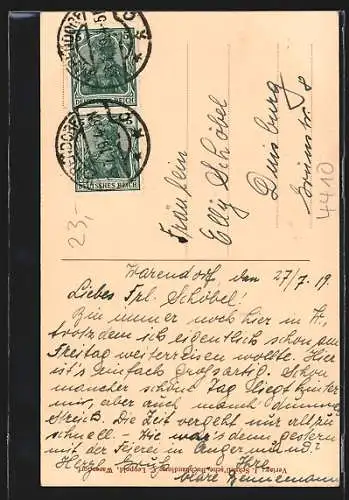 DEUTSCHES REICH
DEUTSCHES REICH
23,-
4410
Fräulein
Elly Schöbel
Duisburg
Warendorf, den 27/7. 19.
Liebes Frl. Schöbel!
Bin immer noch hier in W.,
trotzdem ich eigentlich schon am
Freitag weiterreisen wollte. Hier
ist's einfach großartig. Schon
mancher schöne Tag liegt hinter
mir, aber auch manch dummer
Streich. Die Zeit vergeht nur allzu
schnell. - Wie war's denn gestern
mit der Feier in Angermund?
Herzl. Grüße Ihre
Kläre
Verlag Buchhandlung Leopold, Warendorf